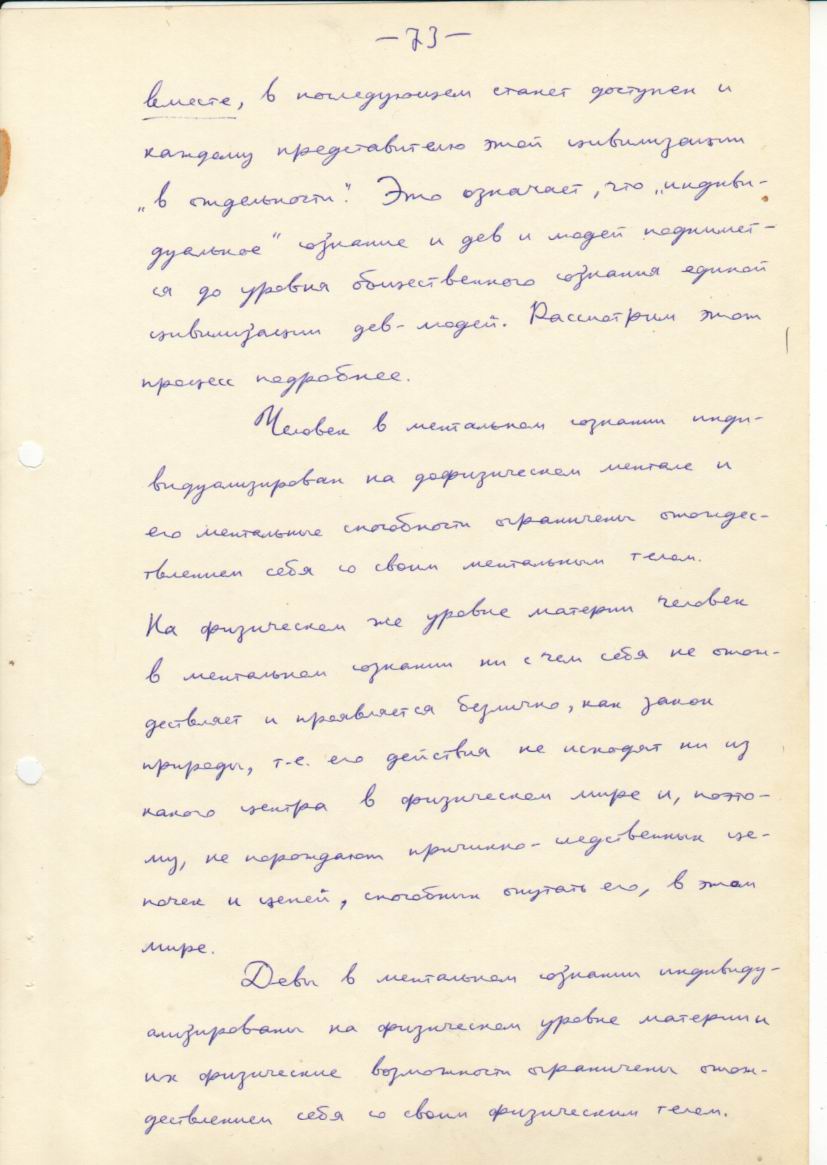 — 73 —
вместе, в последующем станет доступен и
каждому представителю этой цивилизации
„в отдельности". Это означает, что „индиви-
дуальное" сознание и дев и людей поднимет-
ся до уровня общественного сознания единой
цивилизации дев-людей. Рассмотрим этот
процесс подробнее.
Человек в ментальном сознании инди-
видуализирован на дофизическом ментале и
его ментальные способности ограничены отождес-
твлением себя со своим ментальным телом.
На физическом же уровне материи человек
в ментальном сознании ни с чем себя не отож-
дествляет и проявляется безлично, как закон
природы, т.е. его действия не исходят ни из
какого центра в физическом мире и, поэто-
му, не порождают причинно-следственных це-
почек и цепей, способных опутать его, в этом
мире.
Девы в ментальном сознании индивиду-
ализированы на физическом уровне материи и
их физические возможности ограничены отож-
дествлением себя со своим физическим телом.